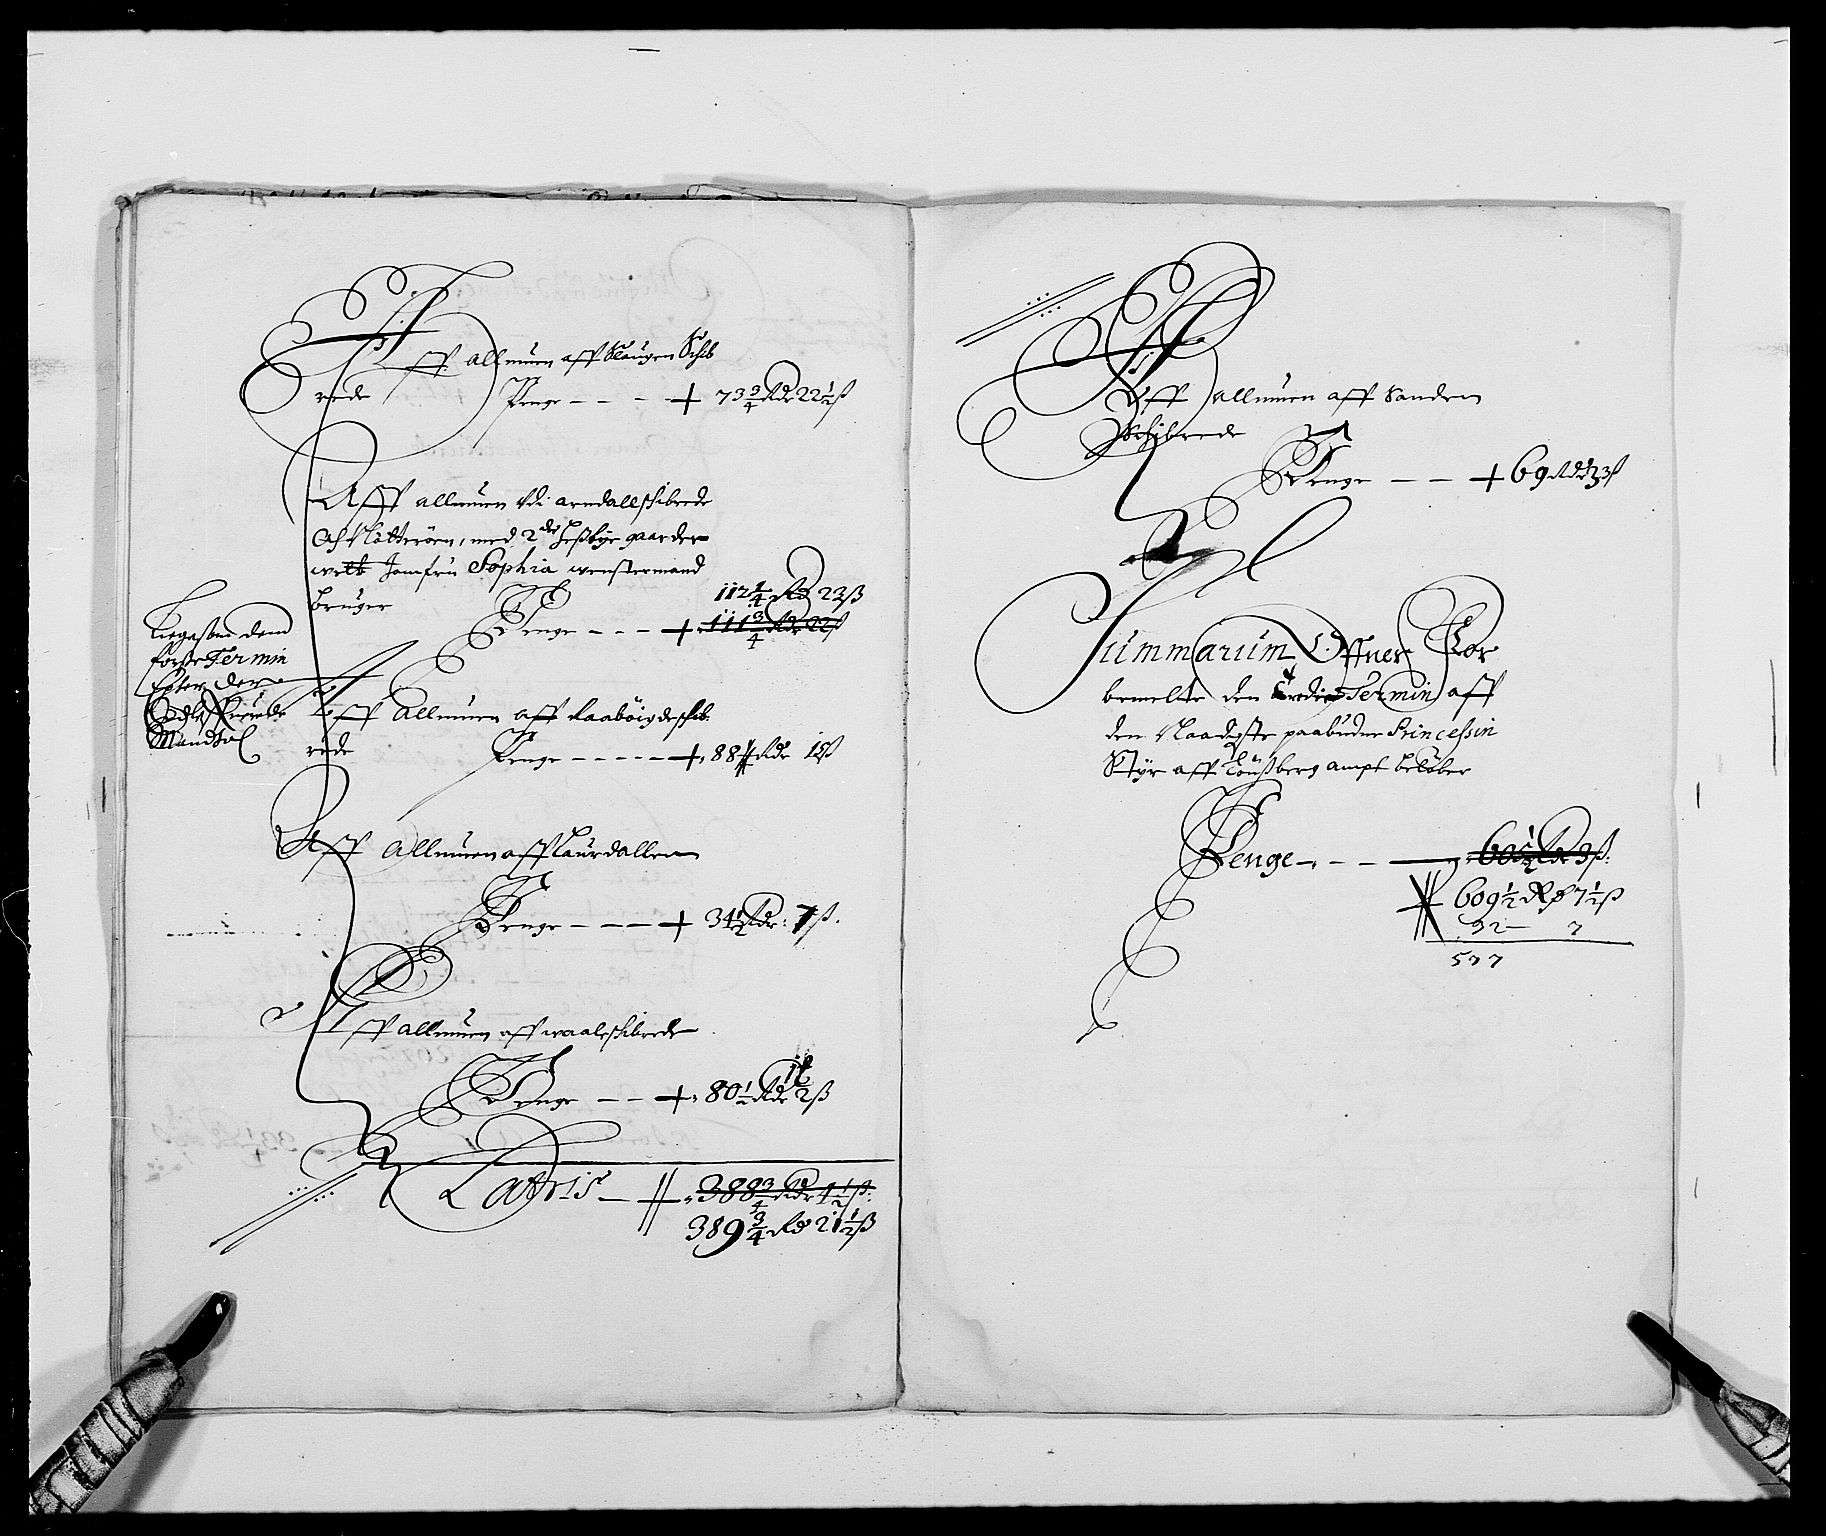 Aff allmuen aff Slaugen Schib
rede Penge - - - + 73 3/4 Rdr 22 1/2 ß
Aff allmuen Udi arendallschibrede
och Nøtterøen, med 2de gaarder
Jomfru Sophia wenstermand
bruger
112 1/4 Rd 23 ß
Penge - - - + 111 3/4 Rdr 22 ß
dend
første Termin
Efter den
Mandtal
Aff Allmuen aff Raabøigdeschib
rede Penge - - - - - + 88 Rdr 18 ß
Aff Allmuen aff Laurdallen
Penge - - - + 34 1/2 Rdr: 7 ß.
Aff allmuen aff waaleschibrede
Penge - - + 80 1/2 Rdr ß
Latris - 388 3/4 Rdr 4 1/2 ß:
389 3/4 Rd 21 1/2 ß
Aff allmuen aff Sanden
Schibrede
Penge - - + 69 Rdr ß
Summarum Offuer For
bemelte den Termin aff
den Naadigste paabudne Princessin
Styr aff Tønsberg ampt beløber
Penge - - - 605 1/2 Rdr 9 ß:
609 1/2 Rd 7 1/2 ß
32 - 7
577